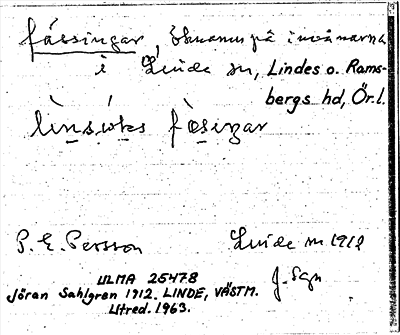 fässingar, öknamn på invånarna
i Linde sn, Lindes o. Rams-
bergs hd, Ör.l.
lìnsio̱kas fæ̀siŋar
P. E. Persson Linde sn 1912
ULMA 25478 J. Sgn
Jöran Sahlgren 1912. LINDE, VÄSTM.
Utred. 1963.